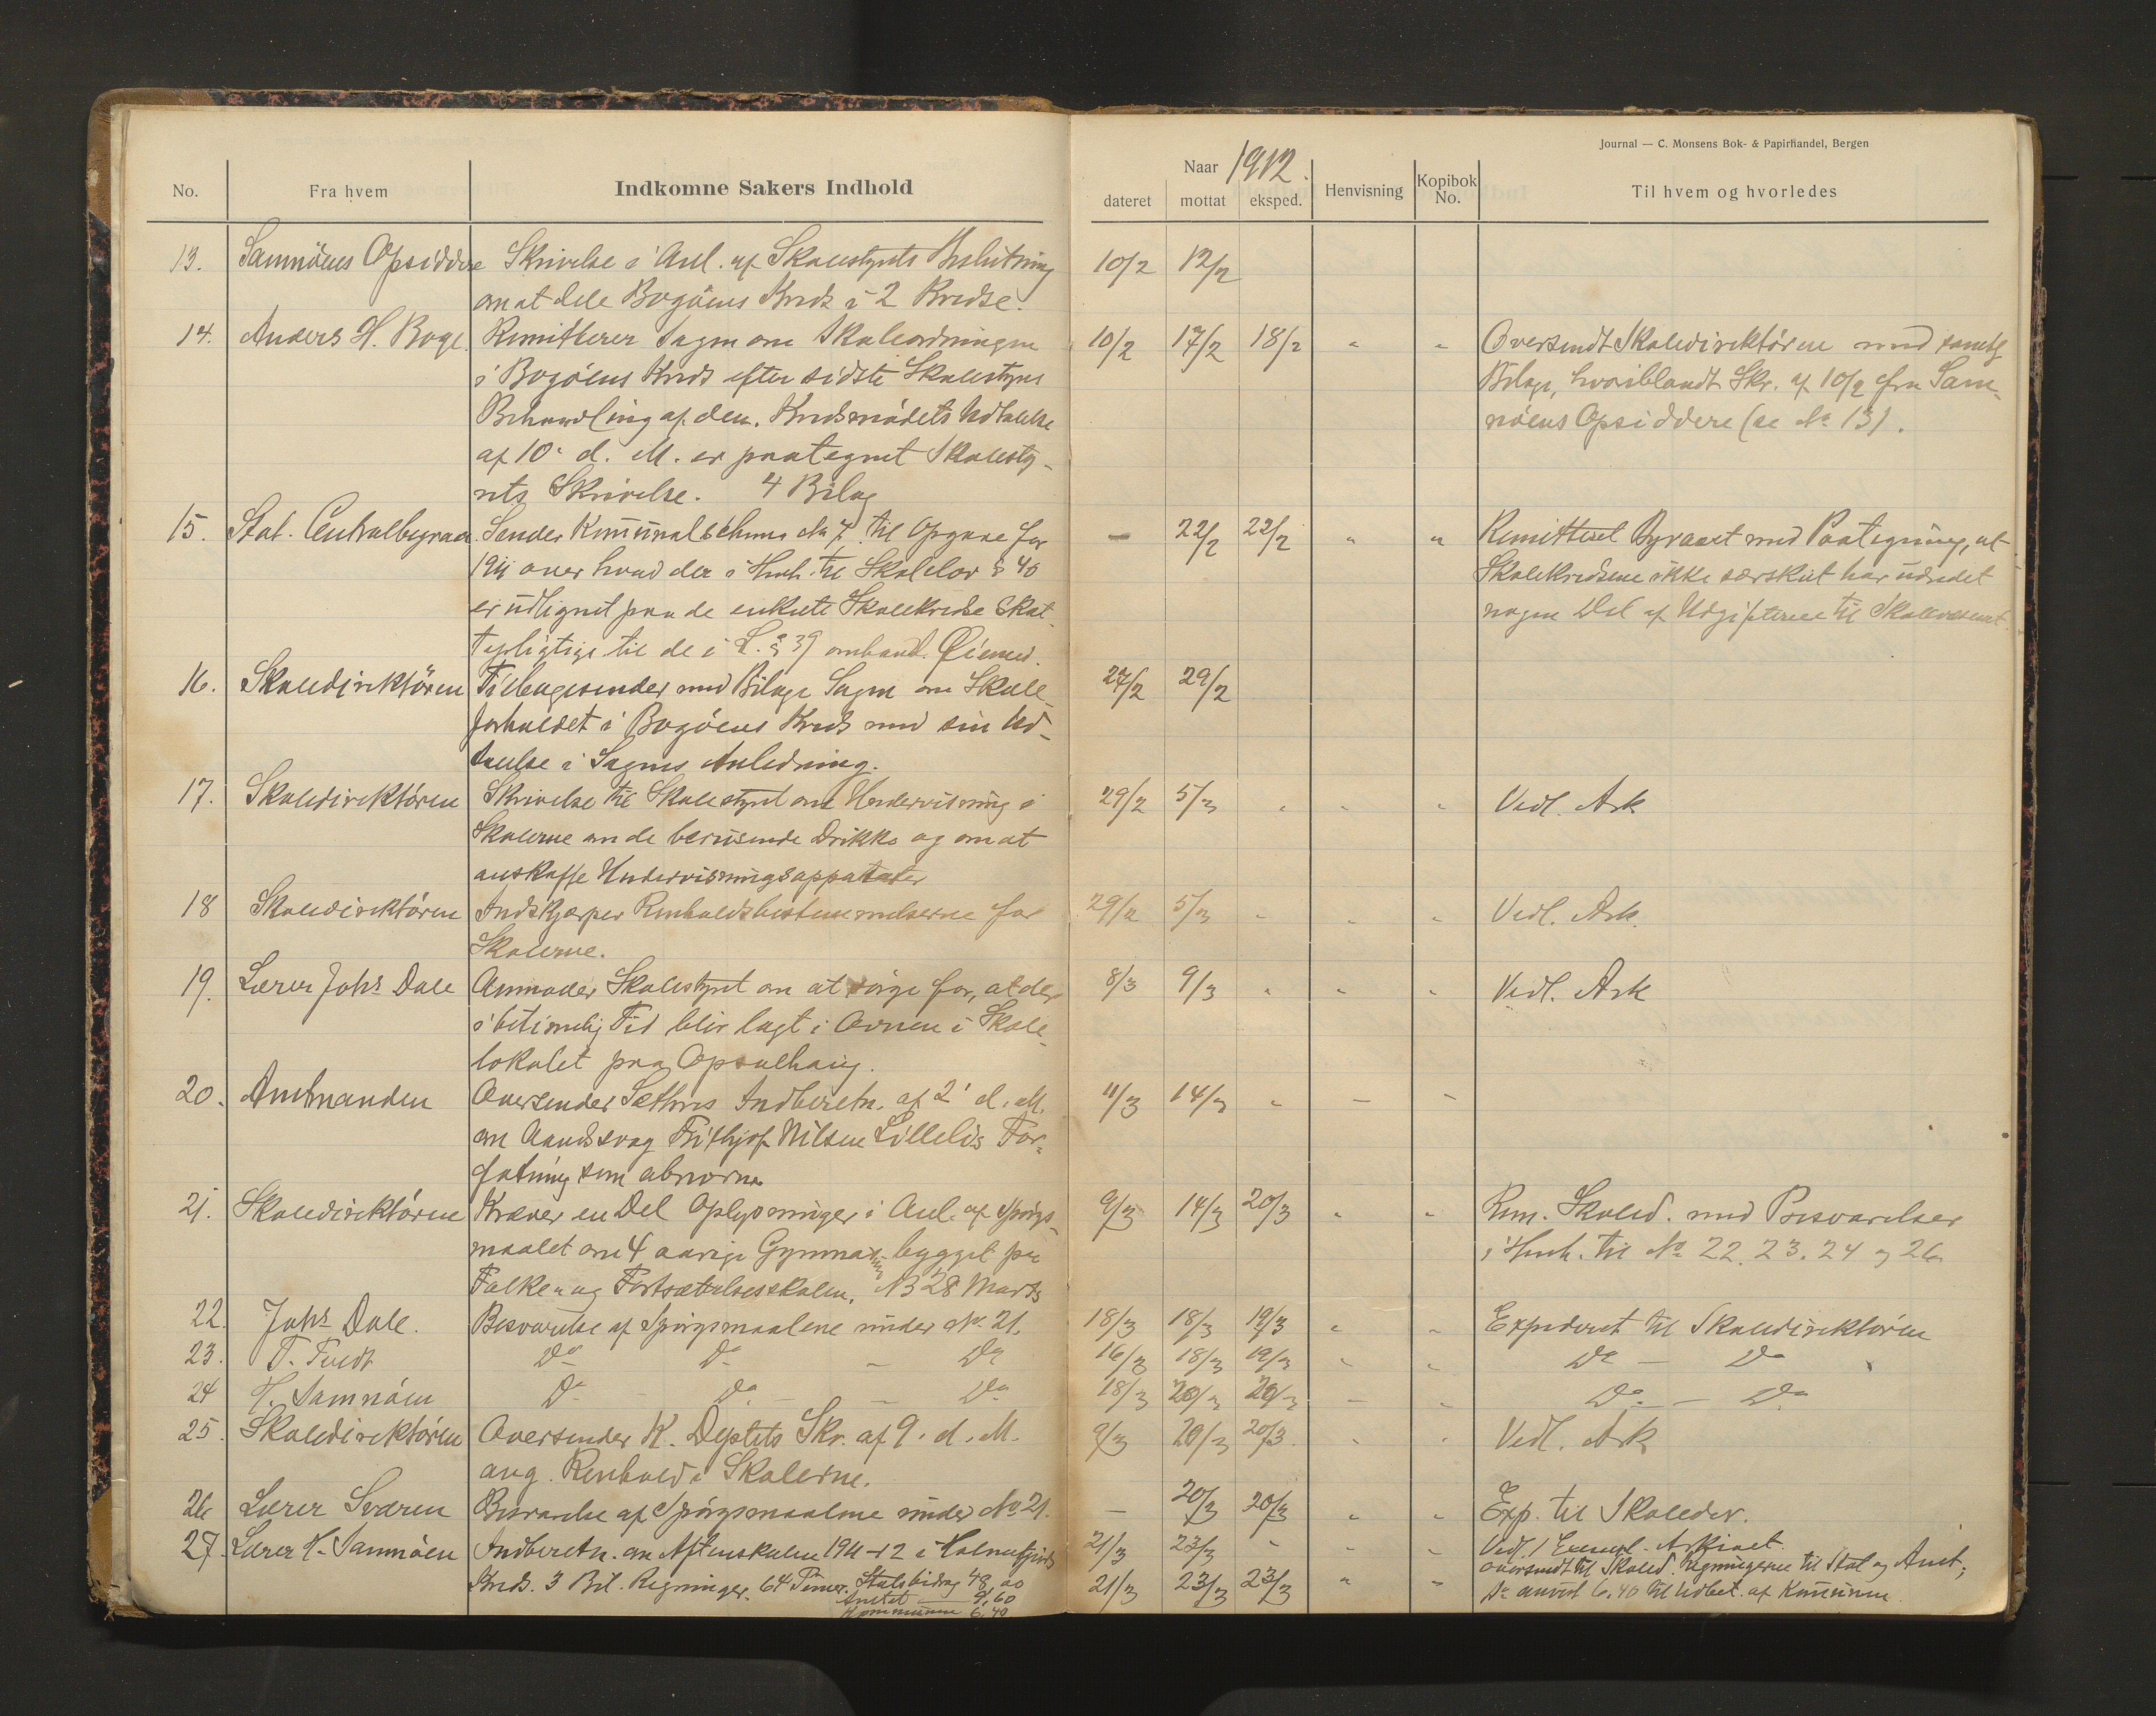 Journal — C. Monsens Bok- & Papirhandel, Bergen
No. Fra hvem Indkomne Sakers Indhold
Naar 1912.
dateret mottat eksped. Henvisning Kopibok No. Til hvem og hvorledes
13. Samnöens Opsiddere Skrivelse i Anl. af Skolestyrets Beslutning 10/2 12/2
om at dele Bogöens Kreds i 2 Kredse.
14. Anders H. Boge Remitterer Sagen om Skoleordningen 10/2 17/2 18/2 " " Oversendt Skoledirektören med samtl
i Bogöens Kreds efter sidste Skolestyres Bilage, hvoriblandt Skr. af 10/2 fra Sam-
Behandling af den. Kredsmödets Udtalelse nöens Opsiddere (se No 13).
af 10. d. M. er paategnet Skolesty-
rets Skrivelse. 4 Bilag
15. Stat. Centralbyraa Sender Kommunalschema No 7 til Opgave for — 22/2 22/2 " " Remitteret Byraaet med Paategning, at
1911 over hvad der i Henh. til Skolelov § 40 Skolekredsene ikke særskilt har udredet
er udlignet paa de enkelte Skolekredse Skat- nogen Del af Udgifterne til Skolevæsenet.
tepligtige til de i L. § 39 omhand. Øiemed.
16. Skoledirektören Tilbagesender med Bilage Sagen om Skole- 27/2 29/2
forholdet i Bogöens Kreds med sin Ud-
talelse i Sagens Anledning.
17. Skoledirektören Skrivelse til Skolestyret om Undervisning i 29/2 5/3 " " " Vedl. Ark
Skolerne om de berusende Drikke og om at
anskaffe Undervisningsapparater
18 Skoledirektören Indskjærper Renholdsbestemmelserne for 29/2 5/3 " " " Vedl. Ark.
Skolerne.
19. Lærer Johs Dale Anmoder Skolestyret om at sörge for, at der 8/3 9/3 " " " Vedl. Ark
i betimelig Tid blir lagt i Ovnen i Skole-
lokalet paa Opsalhaug.
20. Amtmanden Oversender Indberetn. af 2' d. M. 11/3 14/3 " — "
om Aandssvag Frithjof Nilsen Lillelis For-
fatning som abnorm
21. Skoledirektören Kræver en Del Oplysninger i Anl. af Spörgs- 9/3 14/3 20/3 " " Rem. Skoled. med Besvarelser
maalet om 4 aarige Gymnasium bygget paa i Henh. til No 22. 23. 24 og 26
Folke- og Fortsættelsesskolen. NB 28 Marts
22. Johs Dale. Besvarelse af Spörgsmaalene under No. 21. 18/3 18/3 19/3 " " Expederet til Skoledirektören
23. T. Tveit Do Do — Do 16/3 18/3 19/3 " " Do — Do
24 H. Samnöen Do — Do — Do 18/3 20/3 20/3 — " Do — Do
25. Skoledirektören Oversender K. Deptets Skr. af 9. d. M. 9/3 20/3 20/3. " " Vedl. Ark
ang. Renhold i Skolerne.
26 Lærer Sværen Besvarelse af Spörgsmaalene under No 21. — 20/3 20/3 " " Exp. til Skoledir.
27. Lærer H. Samnöen Indberetn. om Aftenskolen 1911-12 i Holmefjords 21/3 23/3 " " " Vedl. 1 Exempl. Arkivet.
Kreds. 3 Bil. Regninger. 64 Timer. Statsbidrag 48,00 21/3 23/3 23/3 " " oversendt til Skoled. Regningerne til Stat og Amt;
Amtet — 9,60 Do anvist 6,40 til Udbet. af Kommunen
Kommunen 6,40